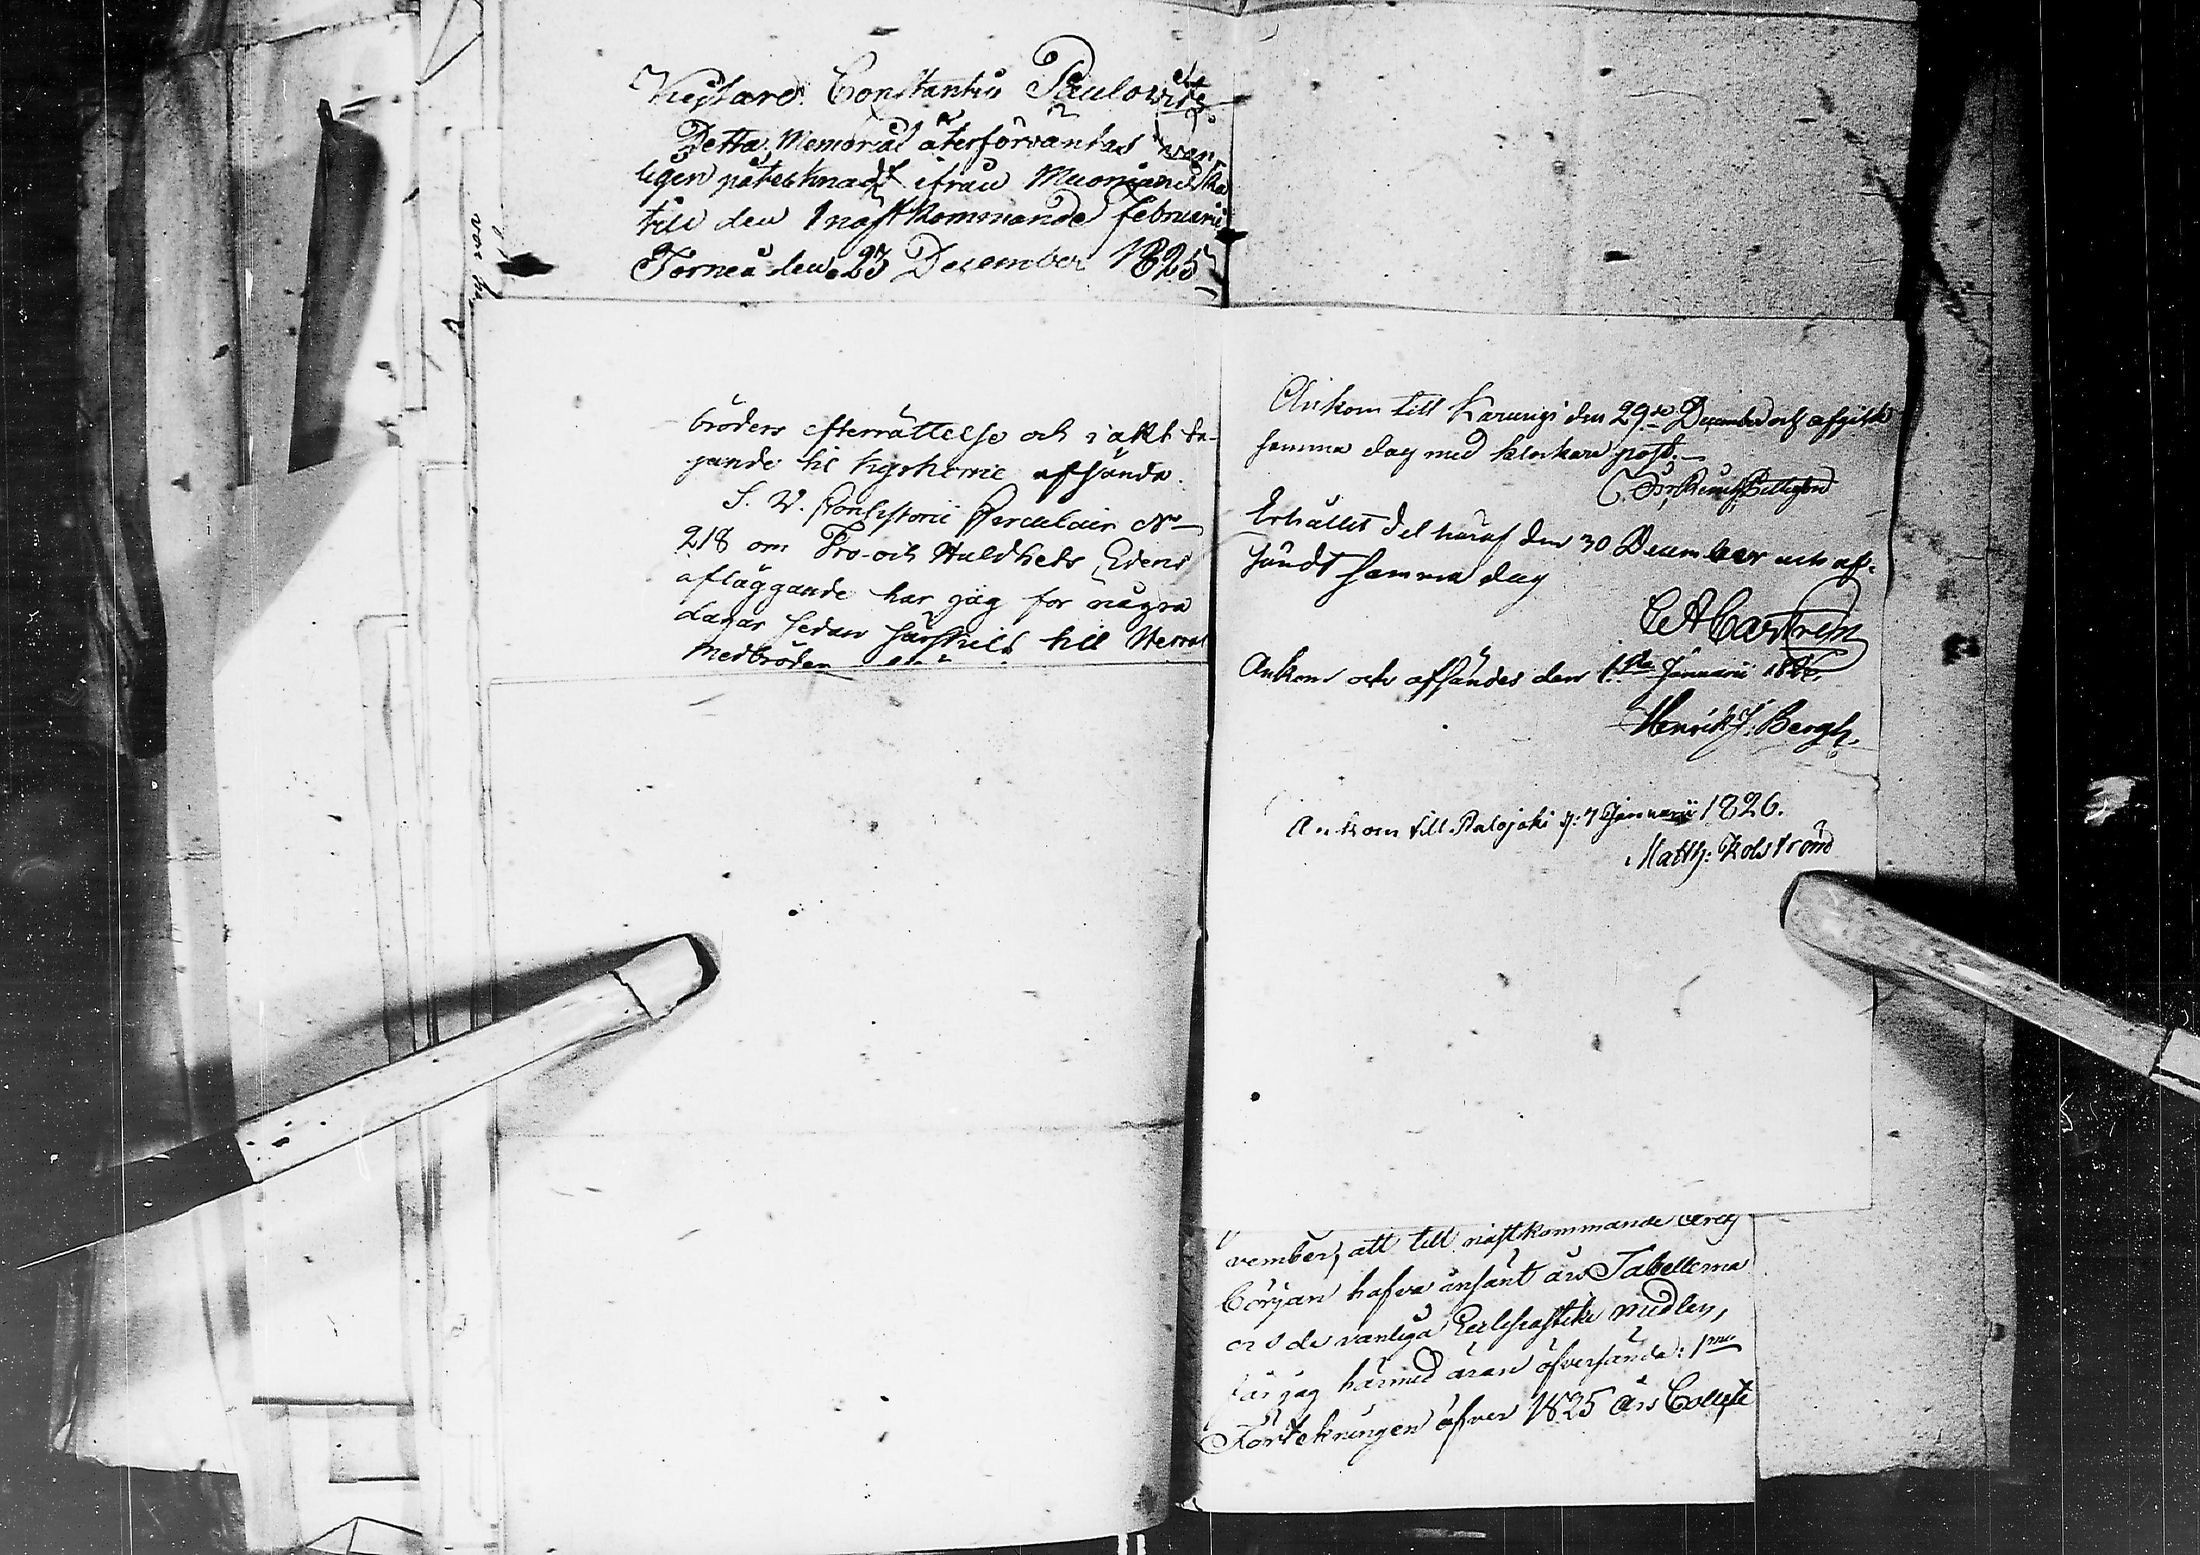 Constantin Paulowitz
Detta Memorial återförväntas vän-
ligen påtecknadt ifrån Muonioniska
till den 1 nästkommande Februarii
Torneå den 23 December 1825
bröders efterrättelse och iaktta-
gande afsända.
S. V. Consistorii Circulair No
218 om Tro- och Huldhets Edens
afläggande har jag for några
dagar sedan särskild till Herrar
Medbröder
Ankom till Karungi den 29de December och afgick
samma dag med klockare post.
Erhållit del häraf den 30 December och af-
sändt samma dag
C A Castrén
Ankom och afsändes den 1sta Januarii 1826.
Henrik J. Bergh.
Ankom till Palojoki d: 7 Januarii 1826.
Matth: Kolström
vember, att till nästkommande
början hafva insänt års Tabellerna
och de vanliga Ecclesiastike medlen,
får jag härmed äran öfversända: 1mo
Förtekningen öfver 1825 års Collect